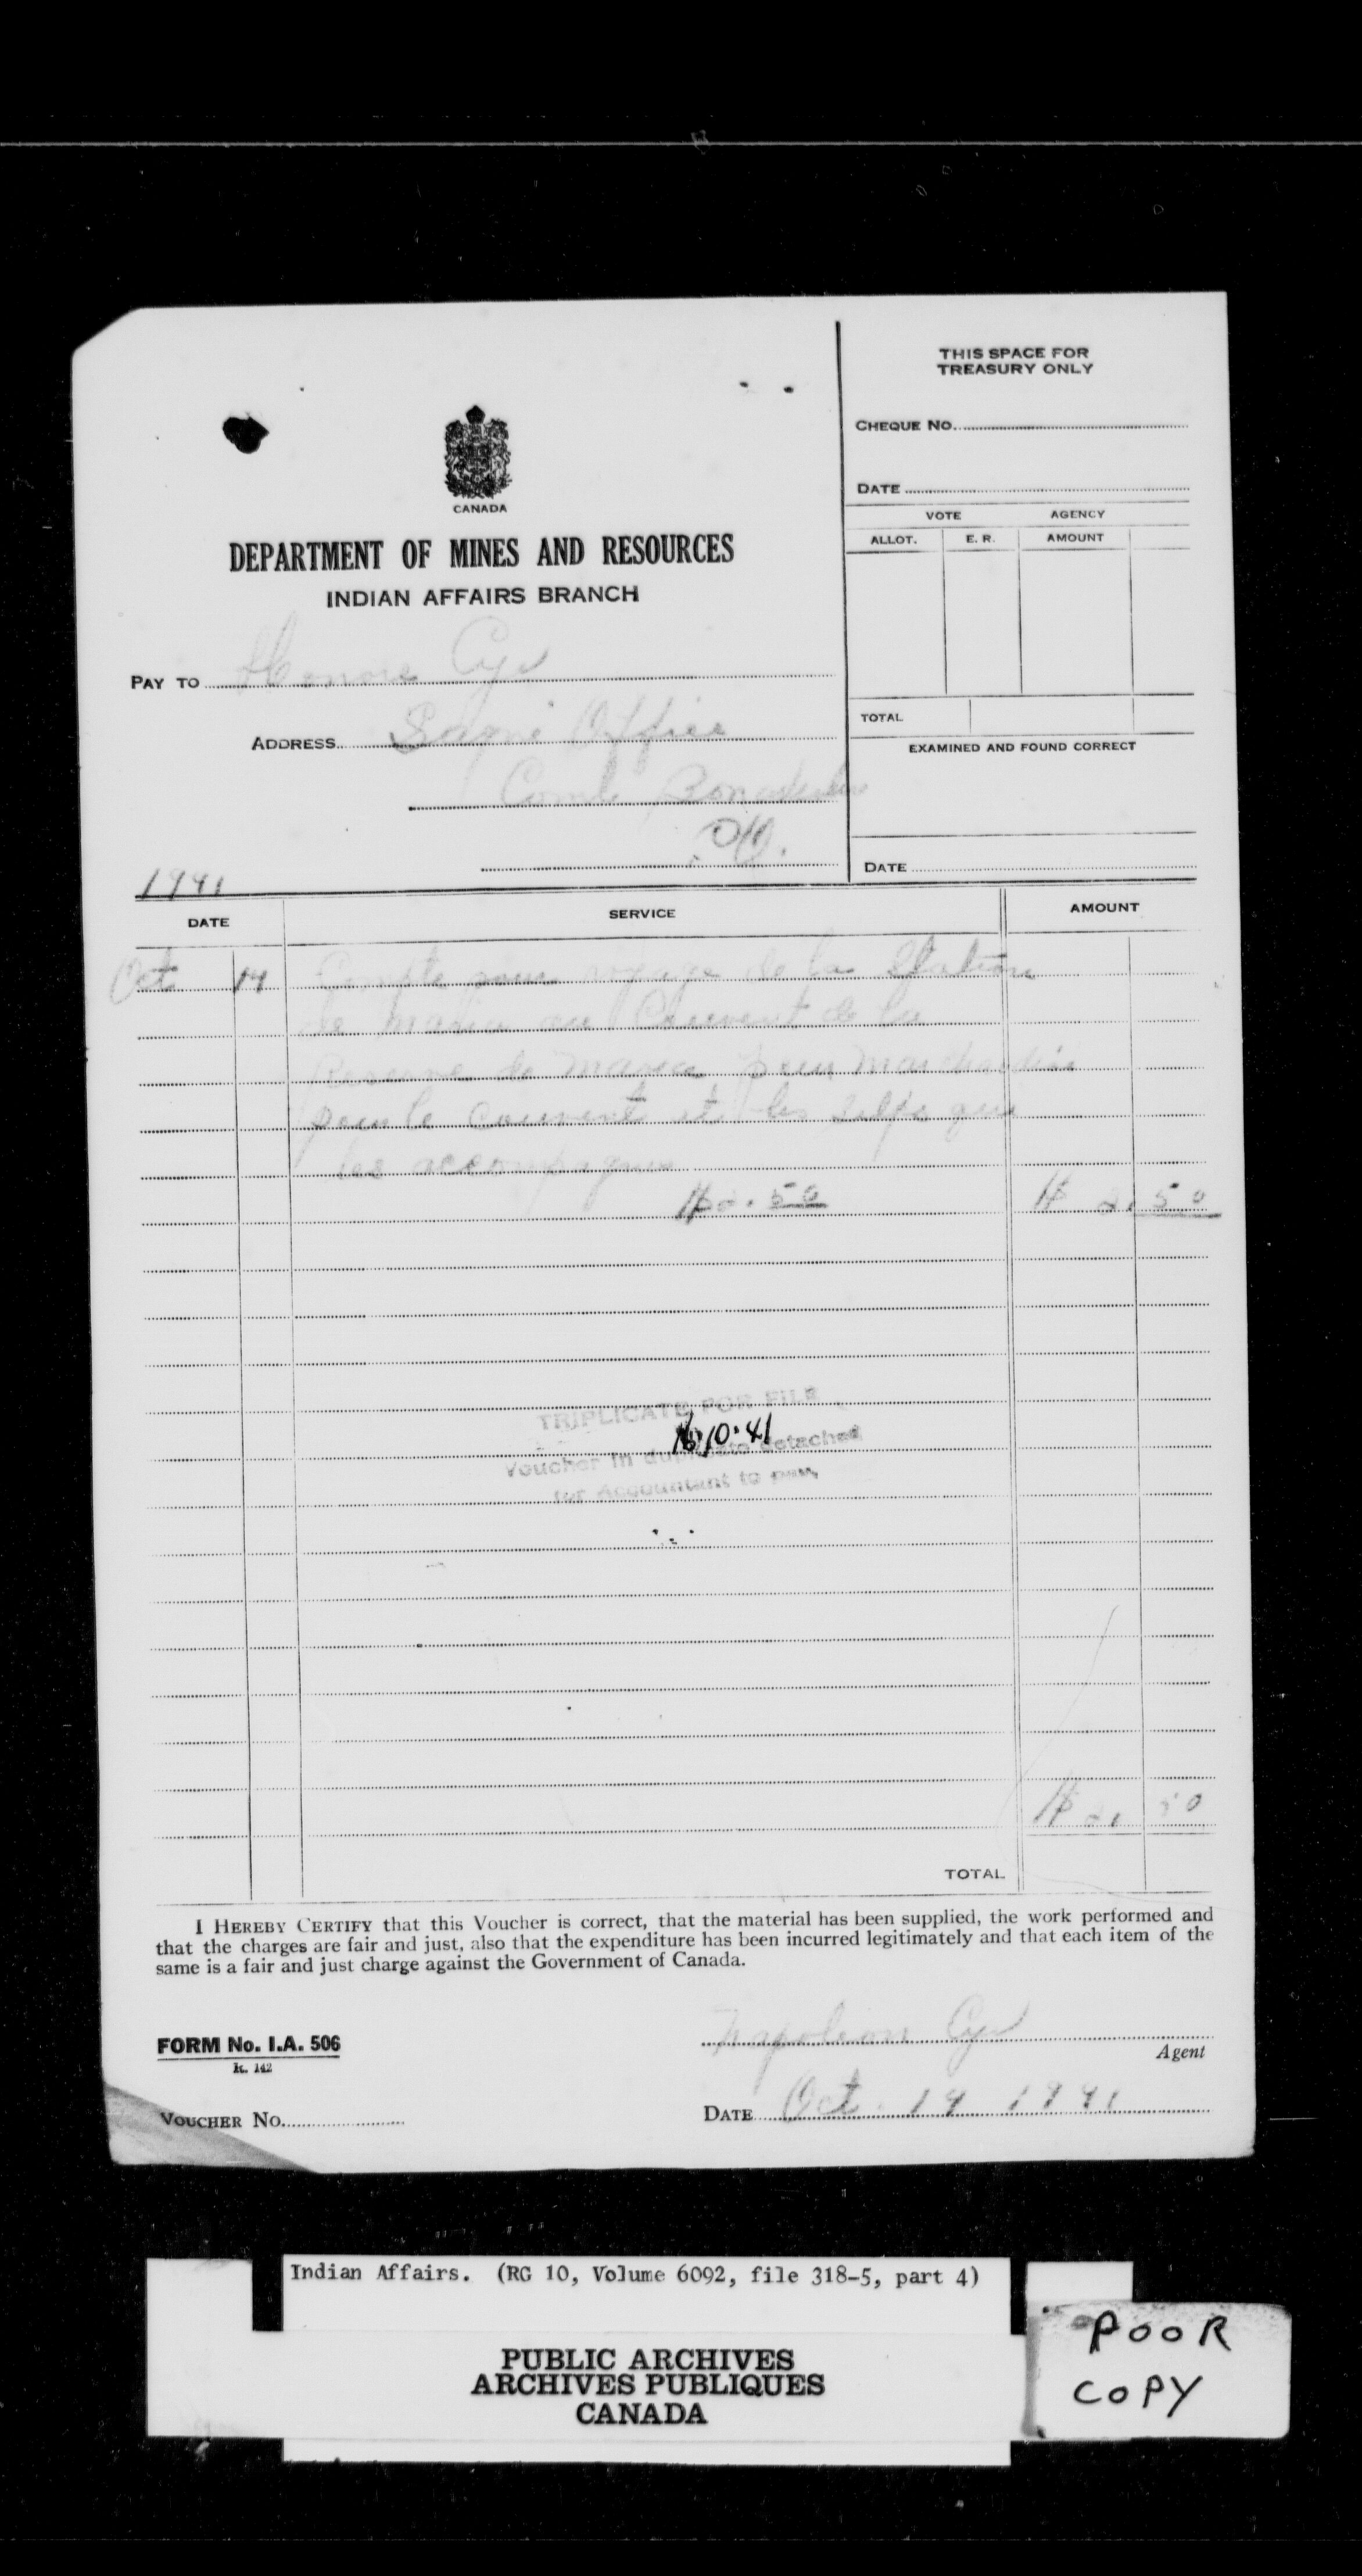 THIS SPACE FOR
TREASURY ONLY
CHEQUE NO.
DATE
VOTE AGENCY
ALLOT. E. R. AMOUNT
TOTAL
EXAMINED AND FOUND CORRECT
DATE
CANADA
DEPARTMENT OF MINES AND RESOURCES
INDIAN AFFAIRS BRANCH
PAY TO Honore Cyr
ADDRESS Office
Comté Bonaventure
P.Q.
1941
DATE SERVICE AMOUNT
Oct 14 Compte pour voyage de la Station
de Maria au Couvent de la
Reserve de Maria pour Marchandise
pour le couvent et les que
les accompagnes
$2.50 $ 2.50
TRIPLICATE FOR FILE
16/10.41
Voucher in duplicate detached
for Accountant to pay
$ 2. 50
TOTAL
I HEREBY CERTIFY that this Voucher is correct, that the material has been supplied, the work performed and
that the charges are fair and just, also that the expenditure has been incurred legitimately and that each item of the
same is a fair and just charge against the Government of Canada.
Napoleon Cyr
Agent
FORM No. I.A. 506
R. 142
VOUCHER NO.
DATE Oct. 14 1941
Indian Affairs. (RG 10, Volume 6092, file 318-5, part 4)
PUBLIC ARCHIVES
ARCHIVES PUBLIQUES
CANADA
POOR
COPY